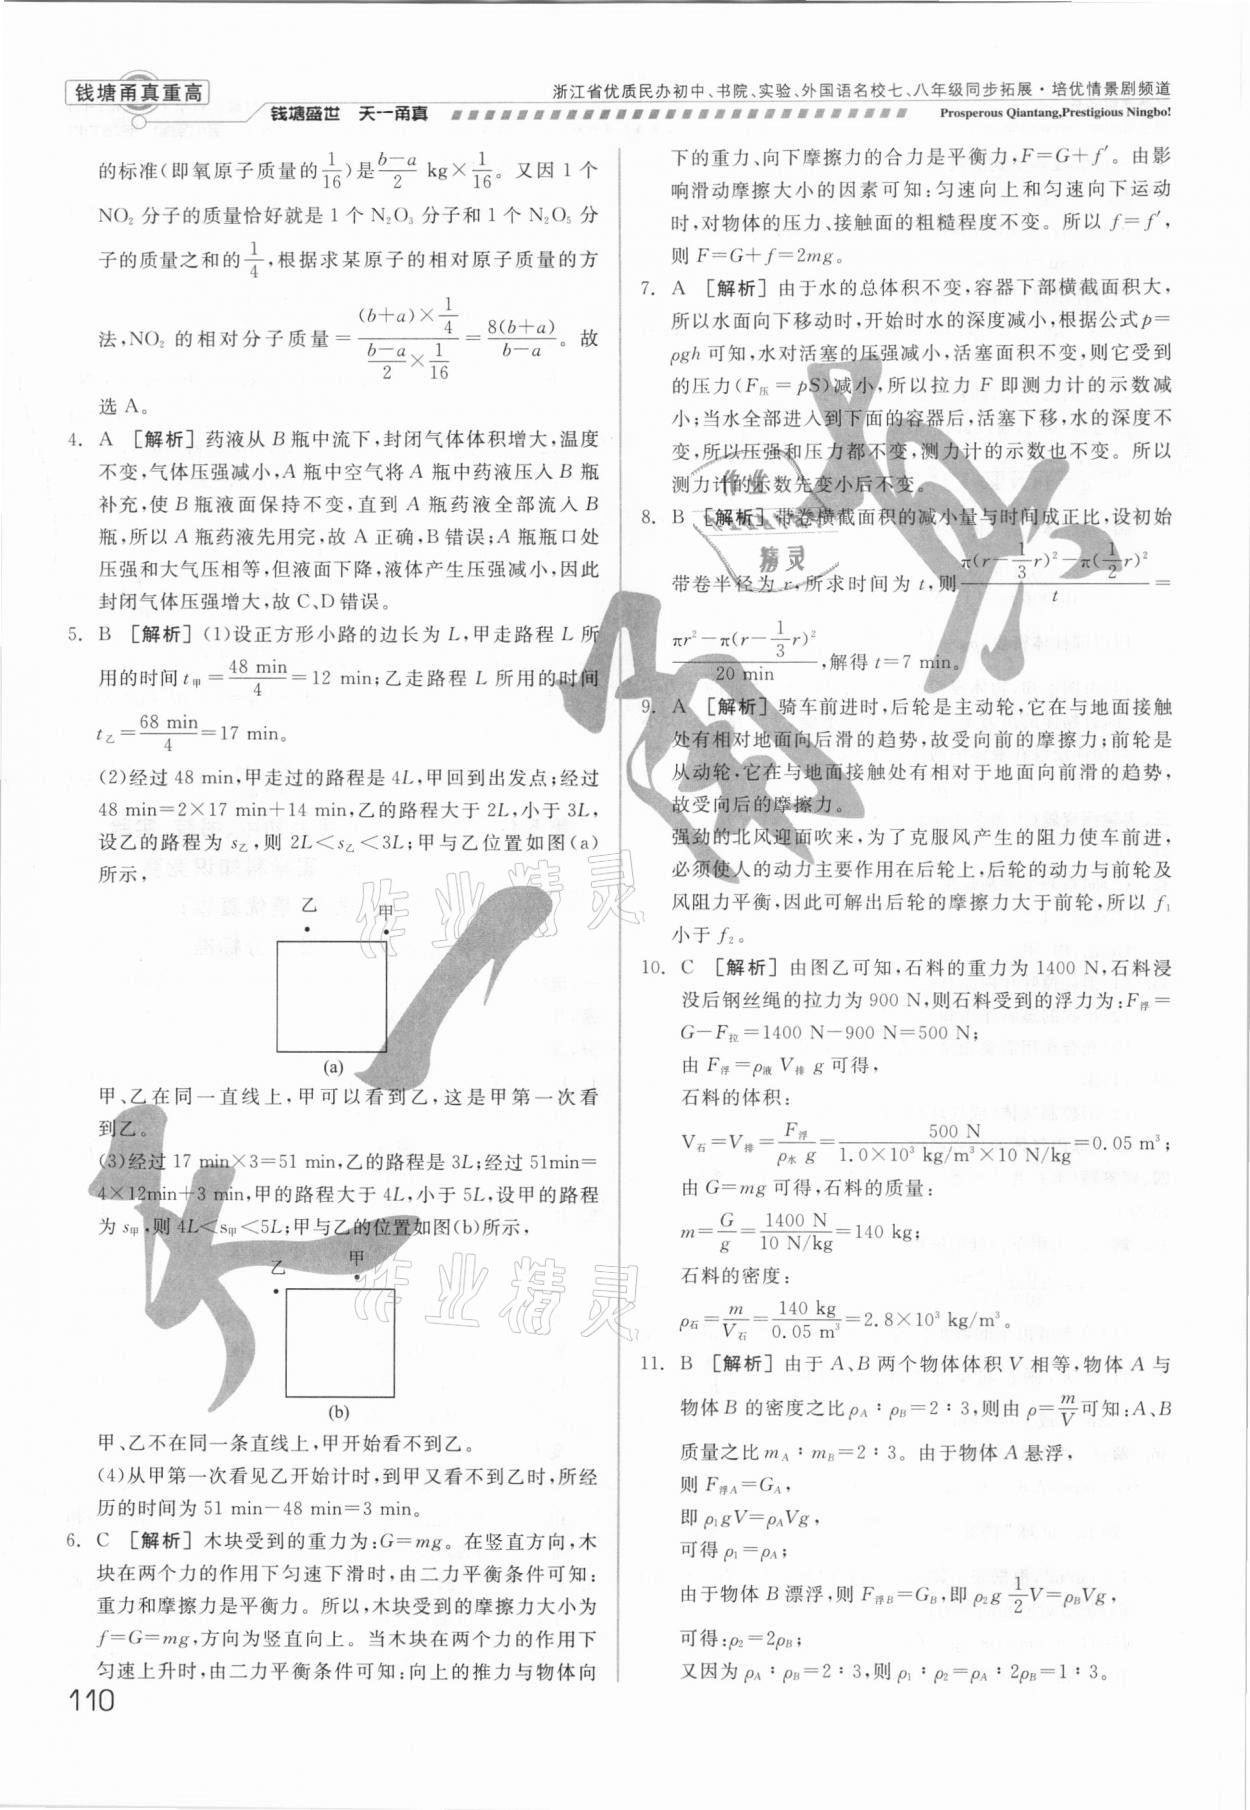 钱塘甬真重高
钱塘盛世 天一甬真
浙江省优质民办初中、书院、实验、外国语名校七、八年级同步拓展·培优情景剧频道
Prosperous Qiantang,Prestigious Ningbo!
的标准(即氧原子质量的1/16)是(b−a)/2 kg×1/16。又因1个
NO₂分子的质量恰好就是1个N₂O₃分子和1个N₂O₅分
子的质量之和的1/4,根据求某原子的相对原子质量的方
法,NO₂的相对分子质量=((b+a)×1/4)/((b−a)/2×1/16)=8(b+a)/(b−a)。故
选A。
4. A [解析]药液从B瓶中流下,封闭气体体积增大,温度
不变,气体压强减小,A瓶中空气将A瓶中药液压入B瓶
补充,使B瓶液面保持不变,直到A瓶药液全部流入B
瓶,所以A瓶药液先用完,故A正确,B错误;A瓶瓶口处
压强和大气压相等,但液面下降,液体产生压强减小,因此
封闭气体压强增大,故C、D错误。
5. B [解析](1)设正方形小路的边长为L,甲走路程L所
用的时间t甲=48 min/4=12 min;乙走路程L所用的时间
t乙=68 min/4=17 min。
(2)经过48 min,甲走过的路程是4L,甲回到出发点;经过
48 min=2×17 min+14 min,乙的路程大于2L,小于3L,
设乙的路程为s乙,则2L<s乙<3L;甲与乙位置如图(a)
所示,
乙 甲
(a)
甲、乙在同一直线上,甲可以看到乙,这是甲第一次看
到乙。
(3)经过17 min×3=51 min,乙的路程是3L;经过51min=
4×12min+3 min,甲的路程大于4L,小于5L,设甲的路程
为s甲,则4L<s甲<5L;甲与乙的位置如图(b)所示,
乙 甲
(b)
甲、乙不在同一条直线上,甲开始看不到乙。
(4)从甲第一次看见乙开始计时,到甲又看不到乙时,所经
历的时间为51 min−48 min=3 min。
6. C [解析]木块受到的重力为:G=mg。在竖直方向,木
块在两个力的作用下匀速下滑时,由二力平衡条件可知:
重力和摩擦力是平衡力。所以,木块受到的摩擦力大小为
f=G=mg,方向为竖直向上。当木块在两个力的作用下
匀速上升时,由二力平衡条件可知:向上的推力与物体向
110
下的重力、向下摩擦力的合力是平衡力,F=G+f′。由影
响滑动摩擦大小的因素可知:匀速向上和匀速向下运动
时,对物体的压力、接触面的粗糙程度不变。所以f=f′,
则F=G+f=2mg。
7. A [解析]由于水的总体积不变,容器下部横截面积大,
所以水面向下移动时,开始时水的深度减小,根据公式p=
ρgh可知,水对活塞的压强减小,活塞面积不变,则它受到
的压力(F压=pS)减小,所以拉力F即测力计的示数减
小;当水全部进入到下面的容器后,活塞下移,水的深度不
变,所以压强和压力都不变,测力计的示数也不变。所以
测力计的示数先变小后不变。
8. B [解析]带卷横截面积的减小量与时间成正比,设初始
带卷半径为r,所求时间为t,则(π(r−1/3r)²−π(1/2r)²)/t=
(πr²−π(r−1/3r)²)/20 min,解得t=7 min。
9. A [解析]骑车前进时,后轮是主动轮,它在与地面接触
处有相对地面向后滑的趋势,故受向前的摩擦力;前轮是
从动轮,它在与地面接触处有相对于地面向前滑的趋势,
故受向后的摩擦力。
强劲的北风迎面吹来,为了克服风产生的阻力使车前进,
必须使人的动力主要作用在后轮上,后轮的动力与前轮及
风阻力平衡,因此可解出后轮的摩擦力大于前轮,所以f₁
小于f₂。
10. C [解析]由图乙可知,石料的重力为1400 N,石料浸
没后钢丝绳的拉力为900 N,则石料受到的浮力为:F浮=
G−F拉=1400 N−900 N=500 N;
由F浮=ρ液V排g可得,
石料的体积:
V石=V排=F浮/(ρ水g)=500 N/(1.0×10³ kg/m³×10 N/kg)=0.05 m³;
由G=mg可得,石料的质量:
m=G/g=1400 N/(10 N/kg)=140 kg;
石料的密度:
ρ石=m/V石=140 kg/0.05 m³=2.8×10³ kg/m³。
11. B [解析]由于A、B两个物体体积V相等,物体A与
物体B的密度之比ρA∶ρB=2∶3,则由ρ=m/V可知:A、B
质量之比mA∶mB=2∶3。由于物体A悬浮,
则F浮A=GA,
即ρ₁gV=ρAVg,
可得ρ₁=ρA;
由于物体B漂浮,则F浮B=GB,即ρ₂g 1/2V=ρBVg,
可得:ρ₂=2ρB;
又因为ρA∶ρB=2∶3,则ρ₁∶ρ₂=ρA∶2ρB=1∶3。
作业精灵
作业精灵